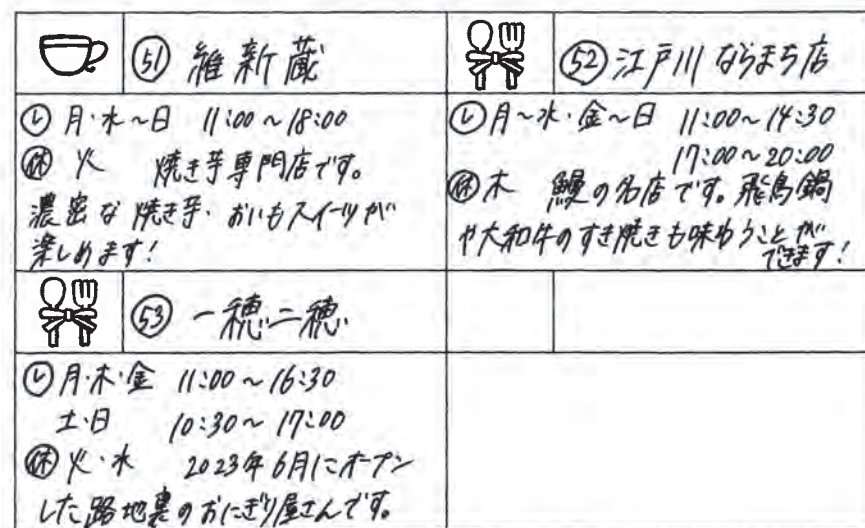 51 維新蔵
レ 月・水〜日 11:00〜18:00
休 火 焼き芋専門店です。
濃密な焼き芋・おいもスイーツが
楽しめます!
52 江戸川 ならまち店
レ 月〜水・金〜日 11:00〜14:30
17:00〜20:00
休 木 鰻の名店です。飛鳥鍋
や大和牛のすき焼きも味わうことが
できます!
53 一穂二穂
レ 月・木・金 11:00〜16:30
土・日 10:30〜17:00
休 火・水 2023年6月にオープン
した路地裏のおにぎり屋さんです。